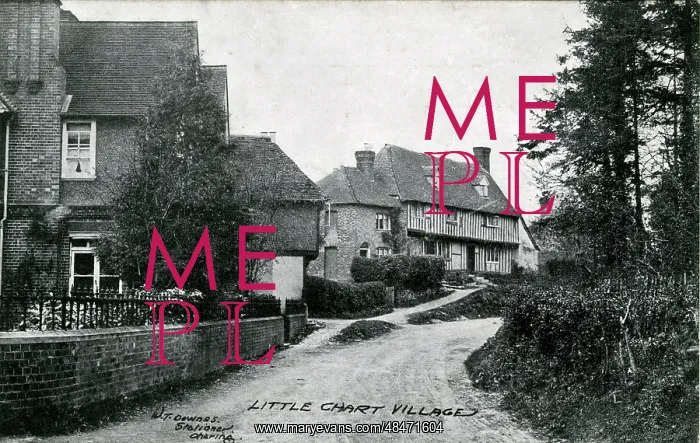 ME
PL
ME
PL
LITTLE CHART VILLAGE
W.T. Downes.
Stationer
Charing.
www.maryevans.com/48471604